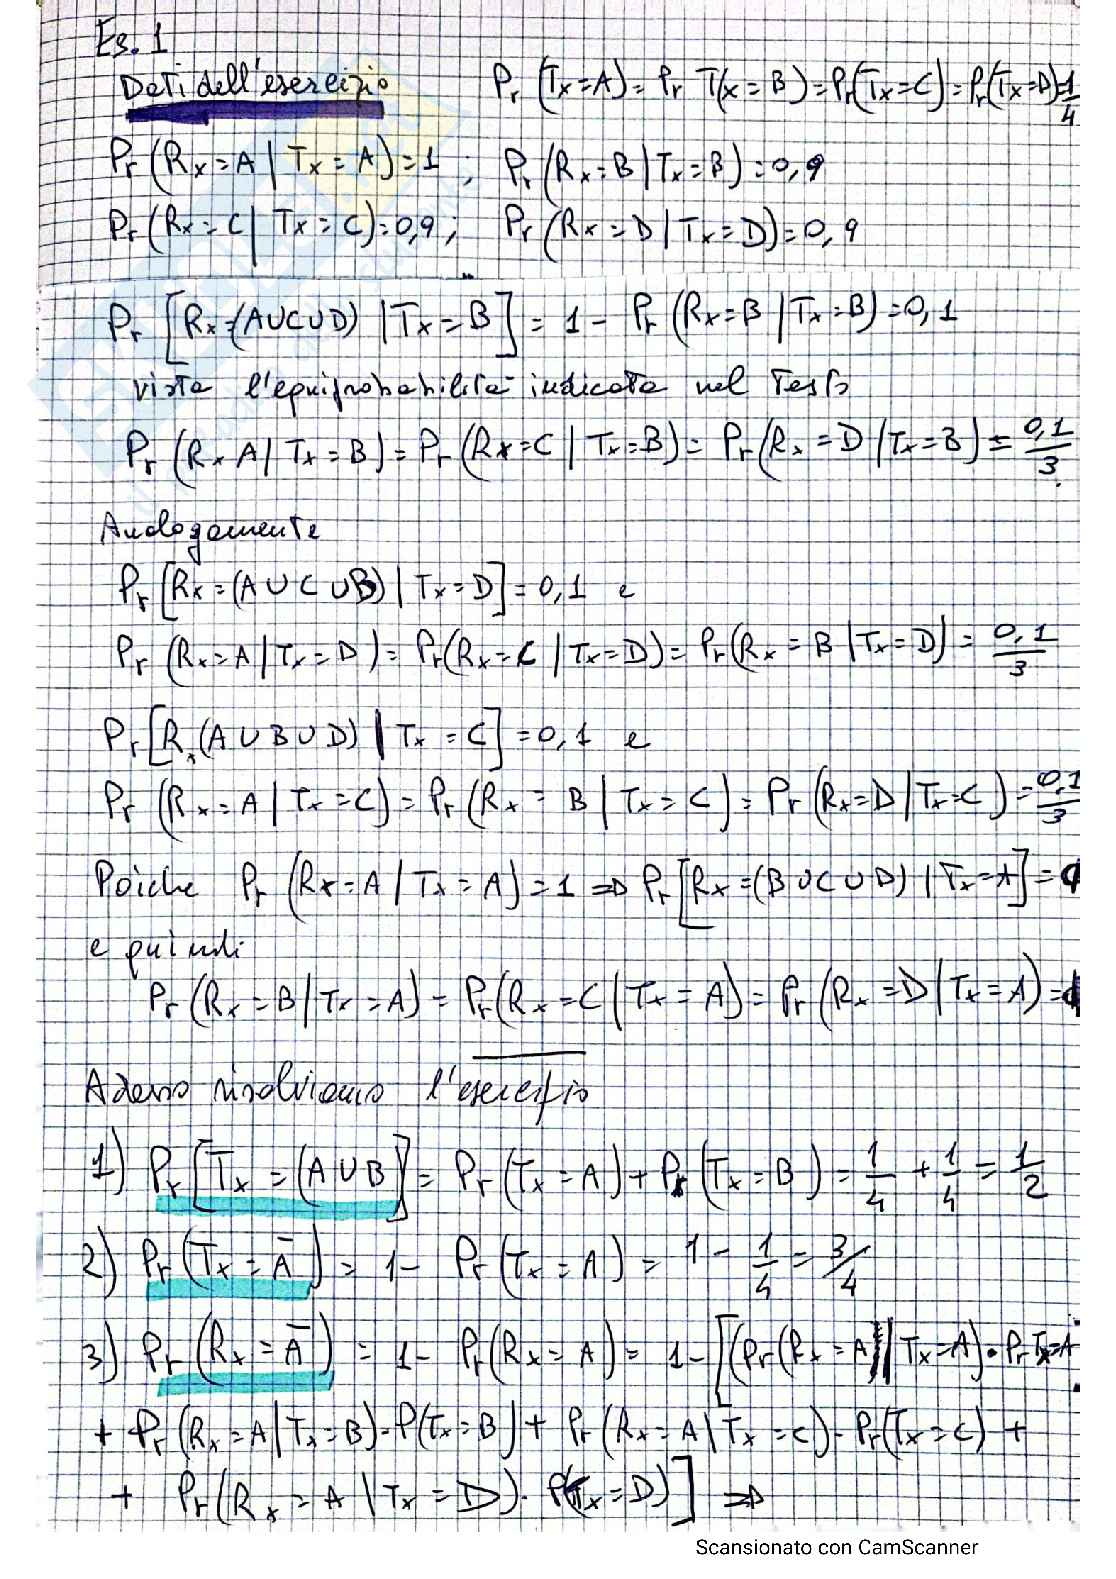 Es. 1
Dati dell'esercizio Pr (Tx=A)= Pr T(x=B)=Pr(Tx=C)=Pr(Tx=D)=1/4
Pr (Rx=A | Tx=A)=1 ; Pr (Rx=B|Tx=B)=0,9
Pr (Rx=C | Tx=C)=0,9; Pr (Rx=D|Tx=D)=0,9
Pr [Rx=(AUCUD) |Tx=B] = 1- Pr (Rx=B |Tx=B)=0,1
vista l'equiprobabilità indicata nel Testo
Pr (Rx A| Tx=B)= Pr (Rx=C | Tx=B)= Pr (Rx=D |Tx=B) = 0,1/3.
Analogamente
Pr [Rx=(AUCUB) | Tx=D]=0,1 e
Pr (Rx=A |Tx=D)= Pr(Rx=C | Tx=D)= Pr(Rx=B |Tx=D) = 0,1/3
Pr [Rx(AUBUD) | Tx=C]=0,1 e
Pr (Rx=A | Tx=C)= Pr (Rx = B | Tx=C)= Pr (Rx=D |Tx=C)=0,1/3
Poiche Pr (Rx=A |Tx=A)=1 => Pr [Rx=(BUCUD) |Tx=A]=0
e quindi
Pr (Rx=B | Tx=A) = Pr(Rx=C | Tx=A)= Pr (Rx=D |Tx=A)=0
Adesso risolviamo l'esercizio
1) Pr [Tx =(AUB]= Pr (Tx=A)+ Pr (Tx=B)= 1/4 + 1/4 = 1/2
2) Pr (Tx=Ā)= 1- Pr (Tx=A) = 1- 1/4 = 3/4
3) Pr (Rx=Ā) = 1- Pr(Rx=A)= 1- [(Pr(Rx=A | Tx=A)·Pr Tx=A
+ Pr (Rx=A|Tx=B)·P(Tx=B)+ Pr (Rx=A|Tx=C)·Pr(Tx=C) +
+ Pr (Rx=A |Tx=D)· P(Tx=D)] =>
Scansionato con CamScanner